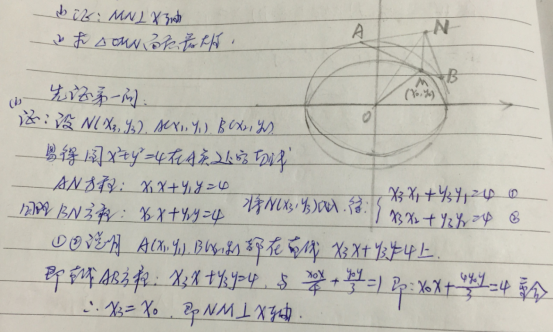 (1) 证: MN⊥X轴
(2) 求△OMN面积最大值.
A
N
M
(x₀,y₀)
B
O
先证第一问:
(1)
证: 设N(x₃,y₃). A(x₁,y₁) B(x₂,y₂)
易得圆x²+y²=4在A点处的切线
AN方程: x₁x+y₁y=4
同理BN方程: x₂x+y₂y=4 将N(x₃,y₃)代入.得: { x₃x₁+y₃y₁=4 ①
x₃x₂+y₃y₂=4 ②
①②说明 A(x₁,y₁).B(x₂,y₂)都在直线 x₃x+y₃y=4上.
即直线AB方程: x₃x+y₃y=4. 与 x₀x/4+y₀y/3=1 即: x₀x+4y₀y/3=4 重合
∴ x₃=x₀. 即NM⊥X轴.